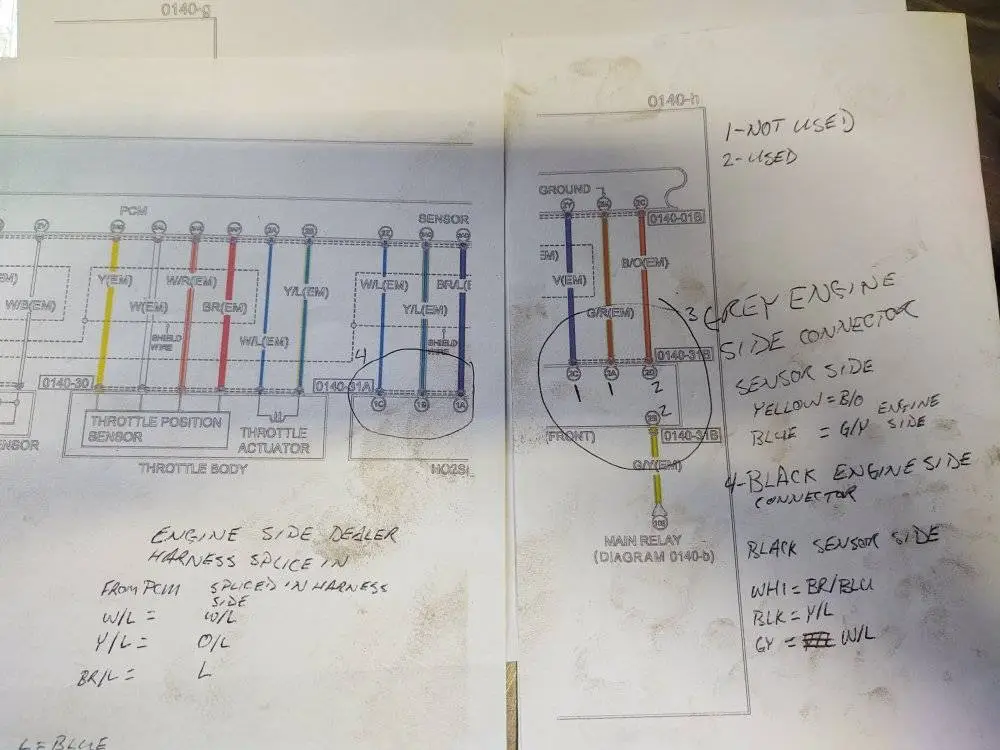 0140-g
0140-h
1-NOT USED
2-USED
PCM
SENSOR
GROUND
0140-01B
Y(EM)
W/R(EM)
W/L(EM)
BR/L(E
EM)
V(EM)
B/O(EM)
EM)
W/B(EM)
W(EM)
BR(EM)
Y/L(EM)
Y/L(EM)
G/R(EM)
SHIELD
WIRE
W/L(EM)
SHIELD
WIRE
3 GREY ENGINE
SIDE CONNECTOR
4
0140-31B
0140-30
0140-31A
1C
1B
1A
2C
2A
2D
1
1
2
2
2B
SENSOR SIDE
YELLOW = B/O
BLUE = G/Y ENGINE SIDE
THROTTLE POSITION
SENSOR
THROTTLE
ACTUATOR
(FRONT)
0140-31B
ENSOR
THROTTLE BODY
HO2S(
G/Y(EM)
4-BLACK ENGINE SIDE
CONNECTOR
MAIN RELAY
(DIAGRAM 0140-b)
BLACK SENSOR SIDE
WHI = BR/BLU
BLK = Y/L
GY = W/L
ENGINE SIDE DEALER
HARNESS SPLICE IN
FROM PCM SPLICED IN HARNESS
SIDE
W/L = W/L
Y/L = O/L
BR/L = L
L = BLUE